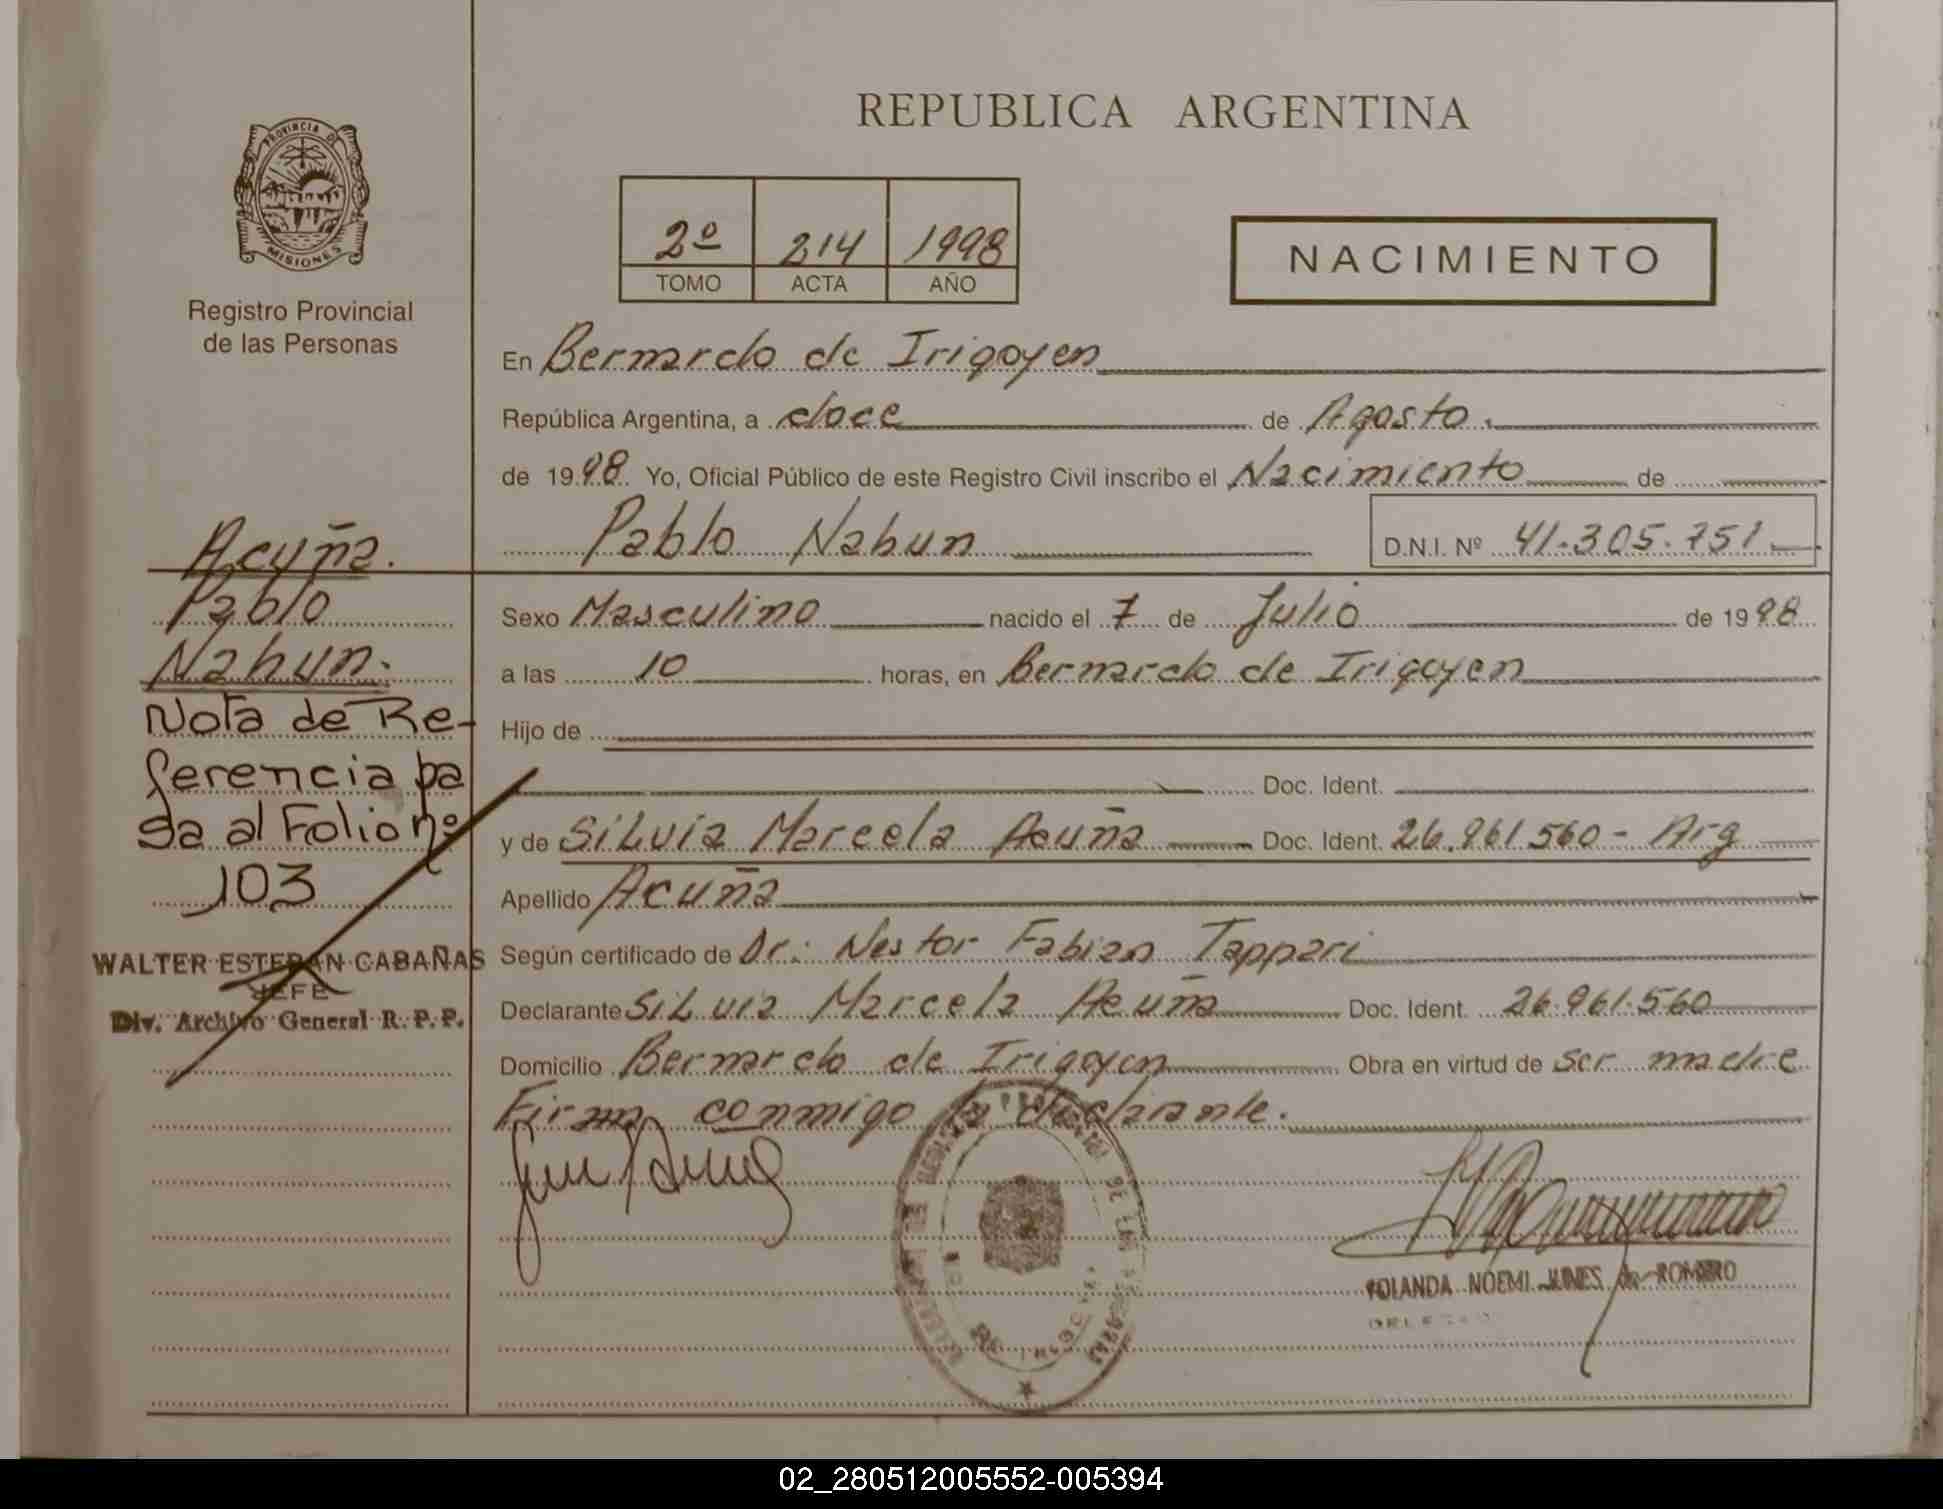 REPUBLICA ARGENTINA
PROVINCIA DE
MISIONES
Registro Provincial
de las Personas
2º 214 1998
TOMO ACTA AÑO
NACIMIENTO
En Bernardo de Irigoyen
República Argentina, a doce de Agosto.
de 1998 Yo, Oficial Público de este Registro Civil inscribo el Nacimiento de
Pablo Nahun D.N.I. Nº 41.305.751
Acuña.
Pablo
Nahun.
Nota de Re-
ferencia pa
sa al Folio nº
103
WALTER ESTEBAN CABAÑAS
JEFE
Div. Archivo General R. P. P.
Sexo Masculino nacido el 7 de Julio de 1998
a las 10 horas, en Bernardo de Irigoyen
Hijo de
Doc. Ident.
y de Silvia Marcela Acuña Doc. Ident. 26.961.560 - Arg
Apellido Acuña
Según certificado de Dr. Nestor Fabian Tappari
Declarante Silvia Marcela Acuña Doc. Ident. 26.961.560
Domicilio Bernardo de Irigoyen Obra en virtud de ser madre
Firma conmigo la declarante.
YOLANDA NOEMI JUNES de ROMERO
02_280512005552-005394